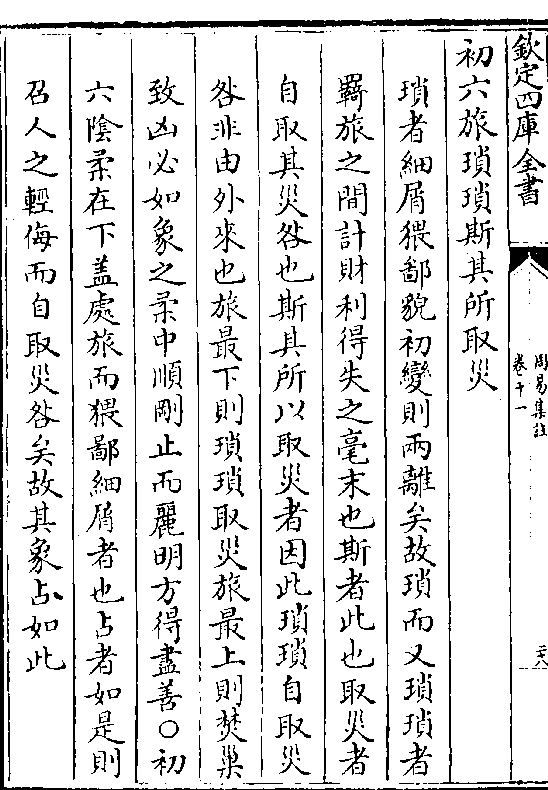 欽定四庫全書
周易集註
卷十一
二十八
初六旅瑣瑣斯其所取災
瑣者細屑猥鄙貌初變則兩離矣故瑣而又瑣瑣者
羇旅之間計財利得失之毫末也斯者此也取災者
自取其災咎也斯其所以取災者因此瑣瑣自取災
咎非由外來也旅最下則瑣瑣取災旅最上則焚巢
致凶必如象之柔中順剛止而麗明方得盡善○初
六陰柔在下盖處旅而猥鄙細屑者也占者如是則
召人之輕侮而自取災咎矣故其象占如此